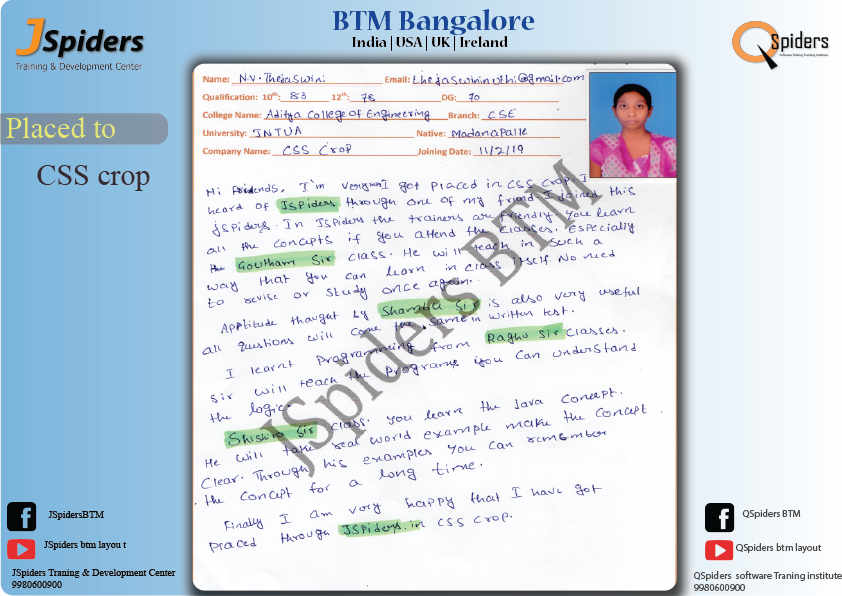 JSpiders
Training & Development Center
BTM Bangalore
India | USA | UK | Ireland
QSpiders
Software Testing Training Institute
Placed to
CSS crop
Name: N.V. Thejaswini Email: thejaswininuthi@gmail.com
Qualification: 10th: 83 12th: 78 DG: 70
College Name: Aditya College of Engineering Branch: CSE
University: JNTUA Native: Madanapalle
Company Name: CSS Crop Joining Date: 11/2/19
Hi friends, I'm I got placed in CSS Crop. I
heard of JSpiders through one of my friend. I joined this
jSpiders. In JSpiders the trainers are friendly you learn
all the concepts if you attend the classes. Especially
the Goutham Sir class. He will teach in such a
way that you can learn in class itself. No need
to revise or study once again.
Apptitude thaught by Shambu Sir is also very useful
all questions will come the same in written test.
I learnt programming from Raghu Sir classes.
Sir will teach the programs you can understand
the logic.
Shishira Sir class. you learn the java concept.
He will take real world example make the concept
clear. Through his examples you can remember
the concept for a long time.
Finally I am very happy that I have got
placed through JSpiders in CSS Crop.
JSpiders BTM
JSpidersBTM
JSpiders btm layou t
JSpiders Traning & Development Center
9980600900
QSpiders BTM
QSpiders btm layout
QSpiders software Traning institute
9980600900